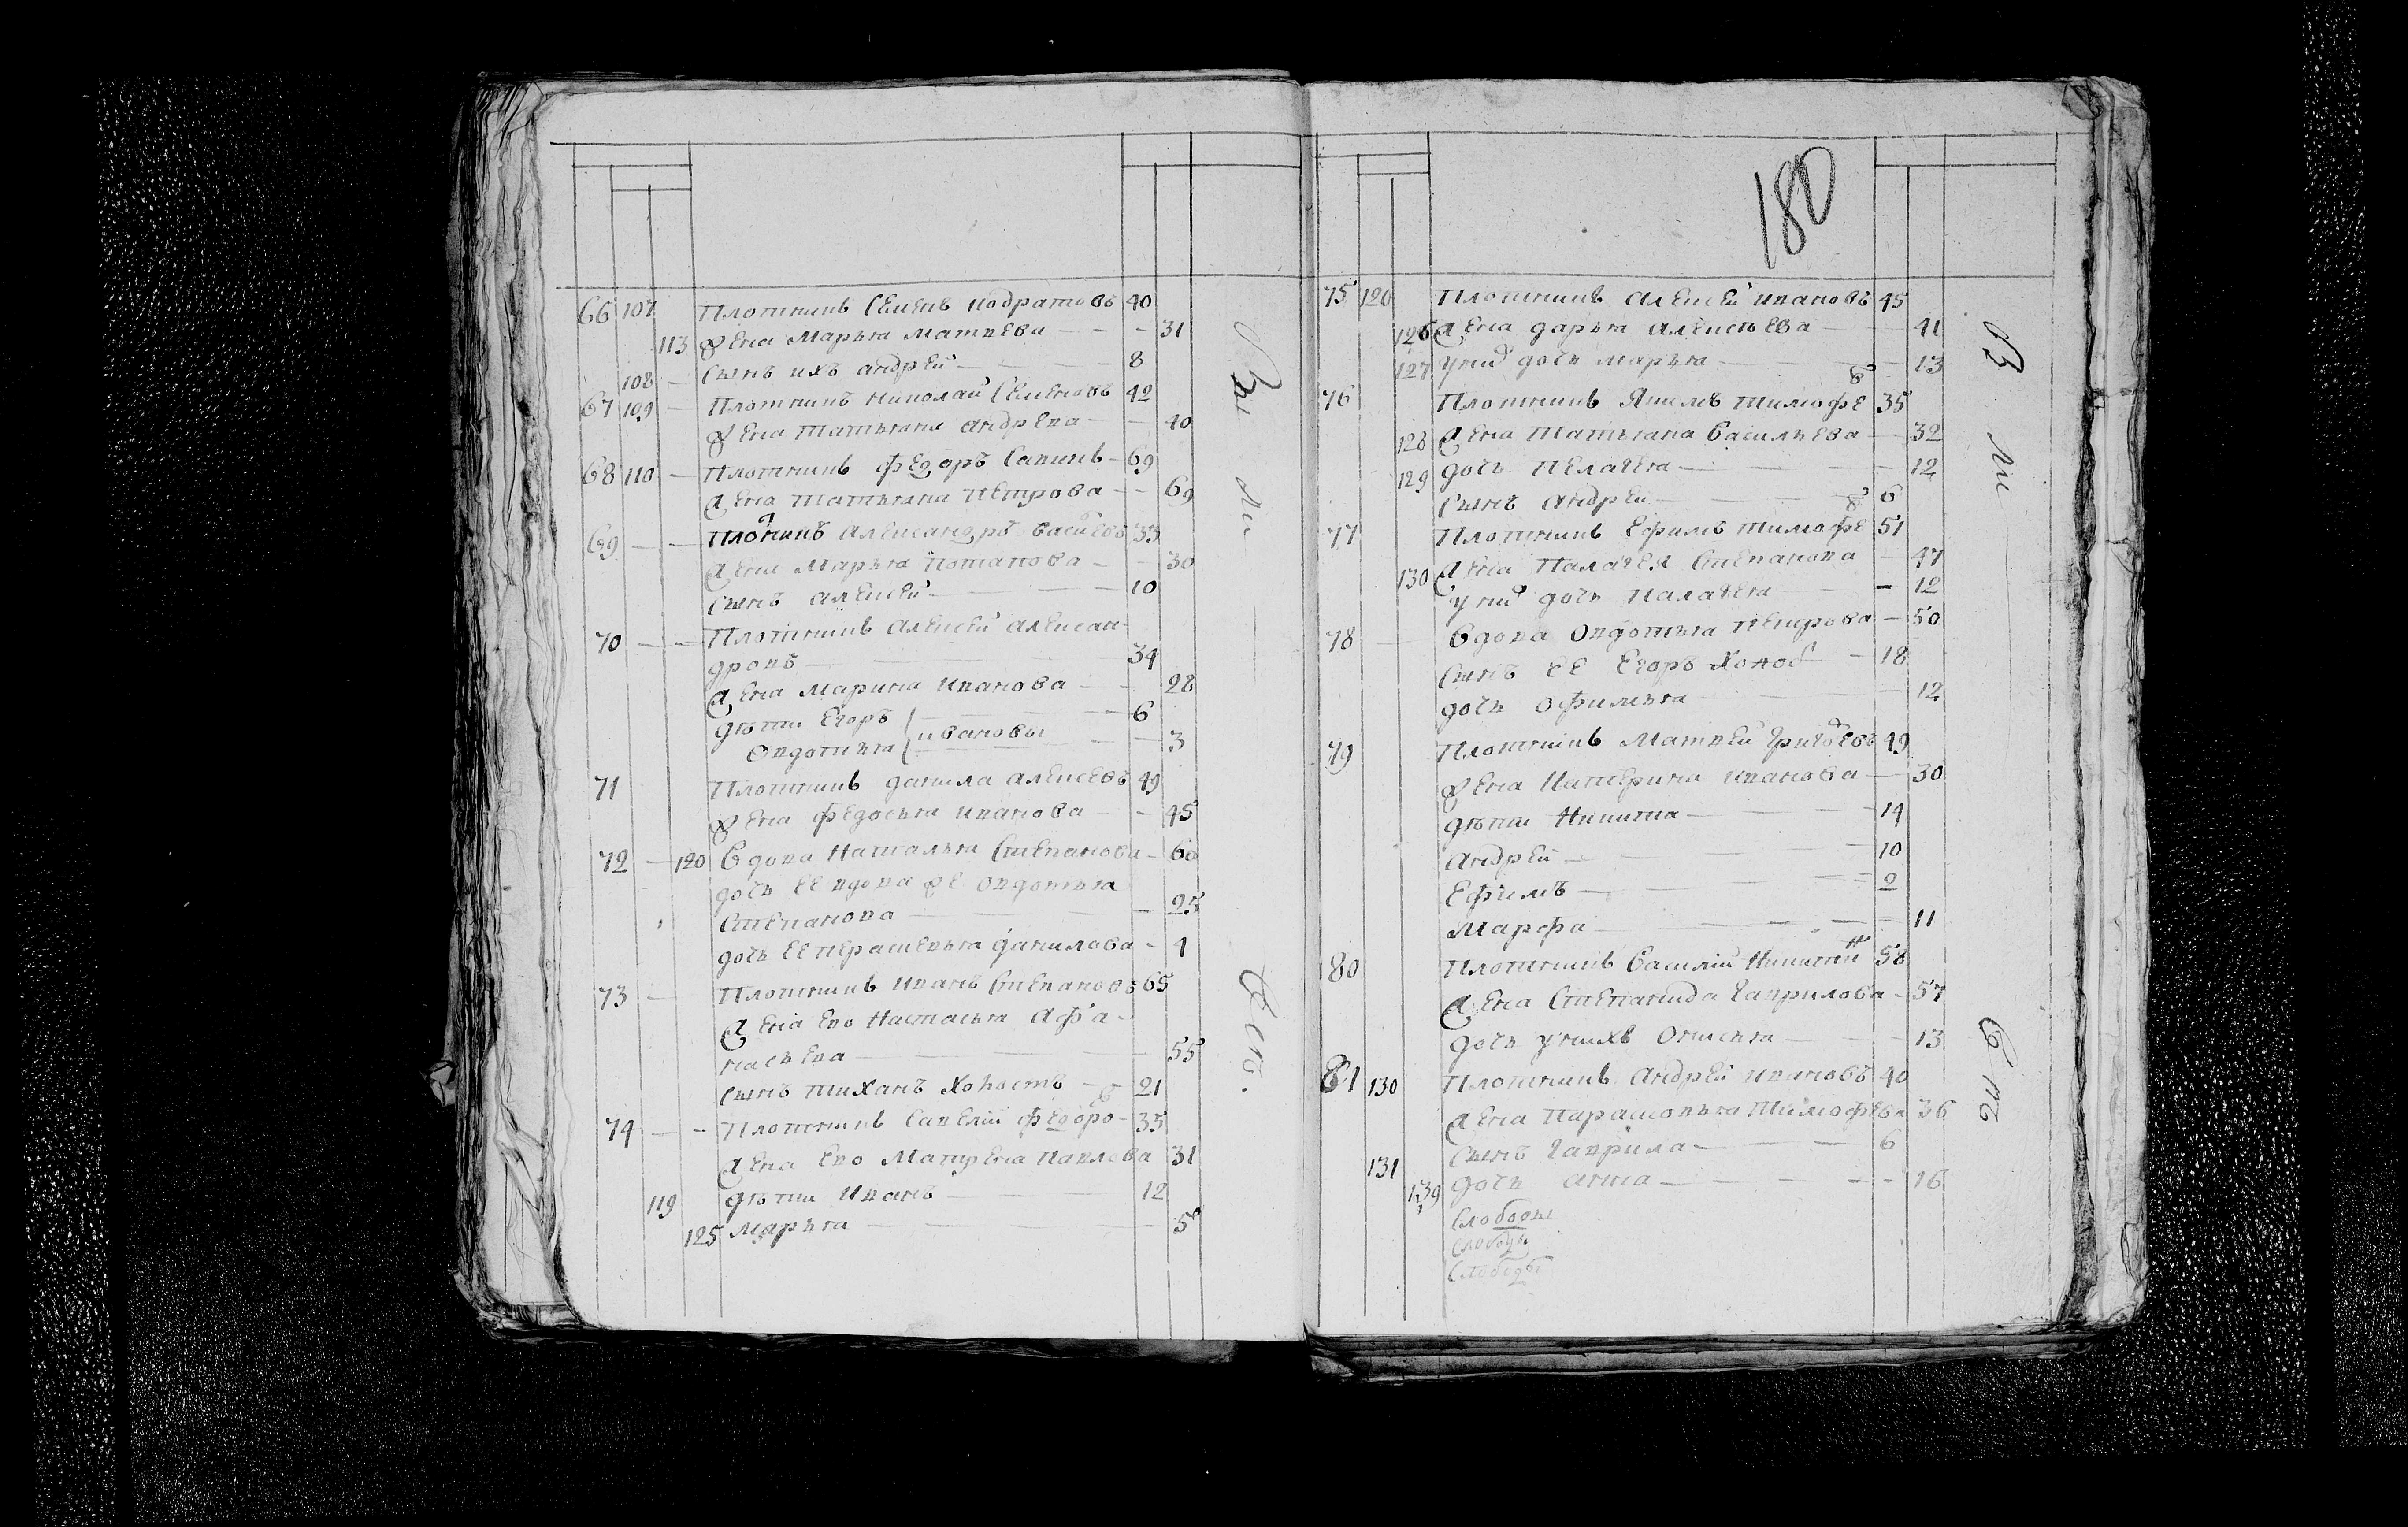 66 107 Плотникъ Семенъ кодратовъ 40
113 жена Марья Матвева 31
108 Сынъ ихъ андрей 8
67 109 Плотникъ николай Семеновъ 42
жена Татьяна андрева 40
68 110 Плотникъ федоръ Савинъ 69
жена татьяна петрова 69
69 Плотникъ александръ василевъ 33
жена Марья потапова 30
Сынъ алексей 10
70 Плотникъ алексей алексан-
дровъ 34
жена Марина иванова 28
дѣти егоръ 6
ивановы
овдотья 3
71 Плотникъ данила алексевъ 49
жена федосья иванова 45
72 120 вдова наталья степанова 60
дочь ее вдова же овдотья
степанова 25
дочь ее парасковья данилова 4
73 Плотникъ иванъ степановъ 65
жена ево настасья афа-
насьева 55
Сынъ тиханъ холостъ 21
74 Плотникъ савелий федоровъ 35
жена ево матрена павлова 31
119 дѣти иванъ 12
125 марья 5
Вы ли
Сте.
180
75 120 Плотникъ алексей ивановъ 45
126 жена дарья алексѣева 41
127 у них дочь марья 13
76 Плотникъ Якимъ тимофевъ 35
128 жена татьяна васильева 32
129 дочь пелагея 12
Сынъ андрей 6
77 Плотникъ ефимъ тимофевъ 51
130 жена палагея степанова 47
у них дочь палагея 12
78 вдова овдотья петрова 50
Сынъ ее егоръ холос 18
дочь офимья 12
79 Плотникъ матвей григоревъ 49
жена катерина иванова 30
дѣти никита 14
андрей 10
ефимъ 2
марфа 11
80 Плотникъ василий никитин 58
жена степанида гаврилова 57
дочь у нихъ 13
81 130 Плотникъ андрей ивановъ 40
жена парасковья тимофева 36
Сынъ гаврила 6
131
139 дочь анна 16
слободы
слободы
слободы
В ли